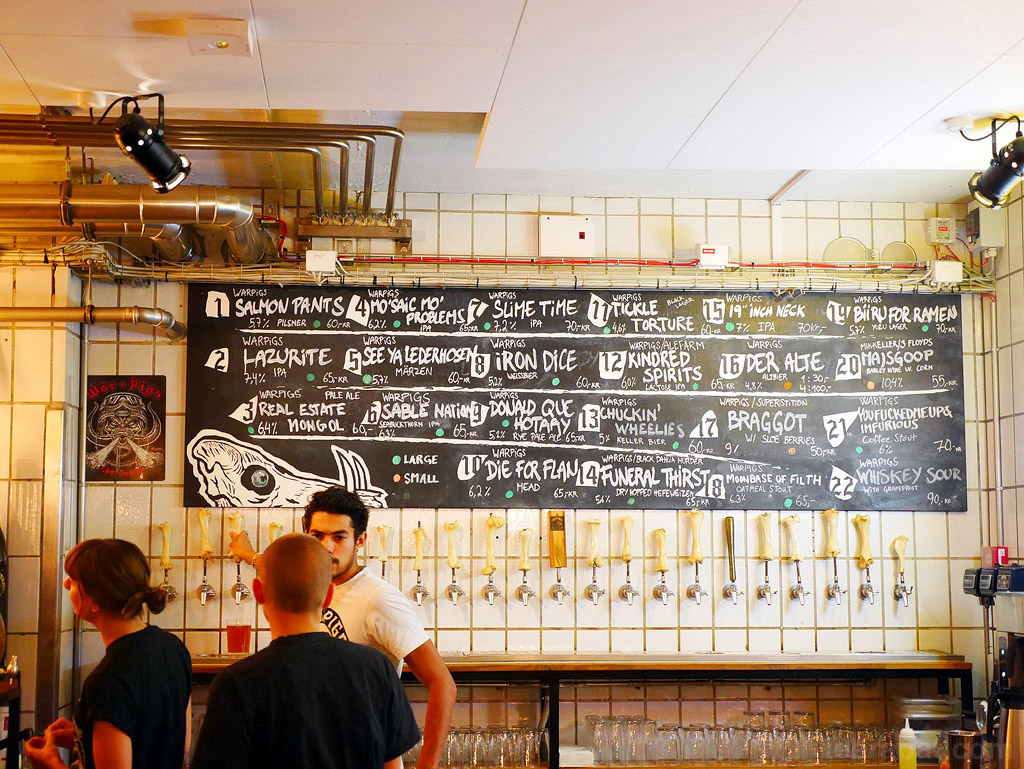 WARPIGS
1 SALMON PANTS
5,7% PILSNER 60-KR
WARPIGS
2 LAZURITE
7,4% IPA 65,-KR
WARPIGS PALE ALE
3 REAL ESTATE
6,4% MONGOL 60-
WARPIGS
4 MO'SAIC MO'
PROBLEMS
6,2% IPA 65,-KR
WARPIGS
5 SEE YA LEDERHOSEN
5,7% MÄRZEN 60,-KR
WARPIGS
6 SABLE NATION
SEABUCKTHORN IPA
6,3% 65,-
WARPIGS
7 SLIME TIME
7,2% IPA 70,-KR
WARPIGS
8 IRON DICE
5,2% WEISSBIER 60,-KR
WARPIGS
9 DONALD QUE
HOTAAY
5,2% RYE PALE ALE 65KR
WARPIGS
DIE FOR FLAN
6,2% MEAD 65,-KR
WARPIGS
11 TICKLE
TORTURE
4,6% BLACK LAGER 60-
WARPIGS/ALEFARM
12 KINDRED
SPIRITS
6,0% LACTOSE IPA 65,-
WARPIGS
13 CHUCKIN'
WHEELIES
5% KELLER BIER 60,-
WARPIGS/BLACK DAHLIA MURDER
14 FUNERAL THIRST
5,4% DRY HOPPED HEFEWEIZEN 65
WARPIGS
15 19" INCH NECK
7% IPA 70KR,-
WARPIGS
16 DER ALTE
ALTBIER 1:30,-
4,8% 4:100,-
WARPIGS/SUPERSTITION
17 BRAGGOT
W/ SLOE BERRIES
9% 50,-KR
WARPIGS
18 MOONBASE OF FILTH
OATMEAL STOUT
6,3% 65,-
WARPIGS
19 BIIRU FOR RAMEN
5,7% YUZU LAGER 70,-KR
MIKKELLER/3 FLOYDS
20 HAJSGOOP
BARLEY WINE W. CORN
10,4% 55,-KR
WARPIGS
21 YOUFUCKEDMEUP &
IMFURIOUS
Coffee Stout
6% 70,-KR
WARPIGS
22 WHISKEY SOUR
WITH GRAPEFRUIT
90,-KR
LARGE
SMALL
War Pigs